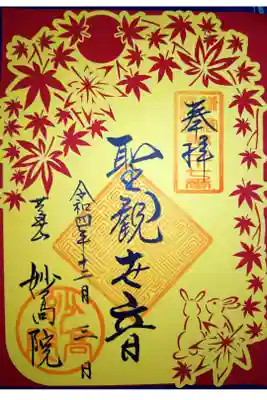 奉拝
聖觀世音
令和四年十二月 日
妙高院
妙高